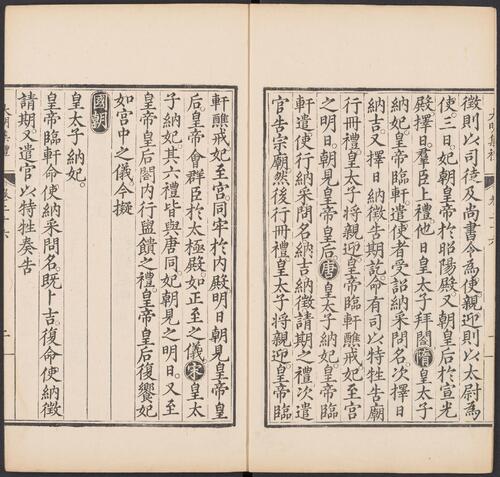 徵則以司徒及尚書令為使親迎則以太尉為
使三日妃朝皇帝於昭陽殿又朝皇后於宣光
殿擇日羣臣上禮他日皇太子拜閤隋皇太子
納妃皇帝臨軒遣使者受詔納采問名次擇日
納吉又擇日納徵告期訖命有司以特牲告廟
行冊禮皇太子將親迎皇帝臨軒醮戒妃至宮
之明日朝見皇帝皇后唐皇太子納妃皇帝臨
軒遣使行納采問名納吉納徵請期之禮次遣
官告宗廟然後行冊禮皇太子將親迎皇帝臨
軒醮戒妃至宮同牢於內殿明日朝見皇帝皇
后皇帝會群臣於太極殿如正至之儀宋皇太
子納妃其六禮皆與唐同妃朝見之明日又至
皇帝皇后閤內行盥饋之禮皇帝皇后復饗妃
如宮中之儀今擬
國朝
皇太子納妃
皇帝臨軒命使納采問名既卜吉復命使納徵
請期又遣官以特牲奏告